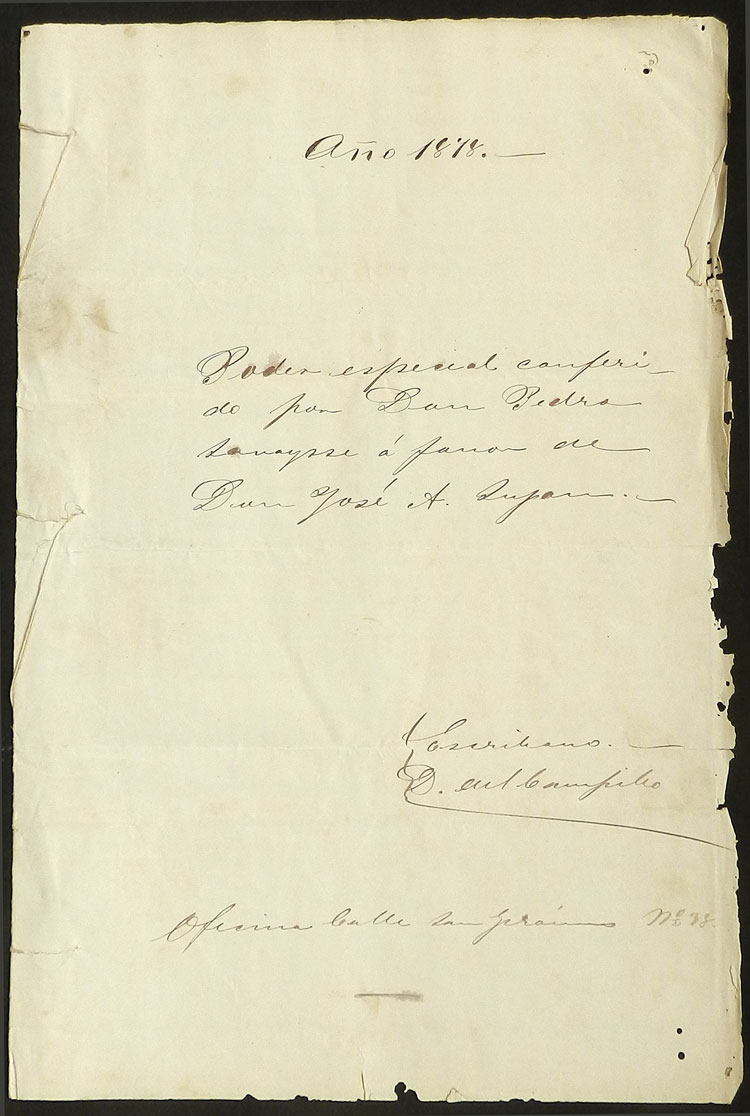 Año 1878.
Poder especial conferi-
do por Don Pedro
á favor de
Don José A.
Escribano.
D. del Campillo
Oficina Calle San Gerónimo Nº 38.